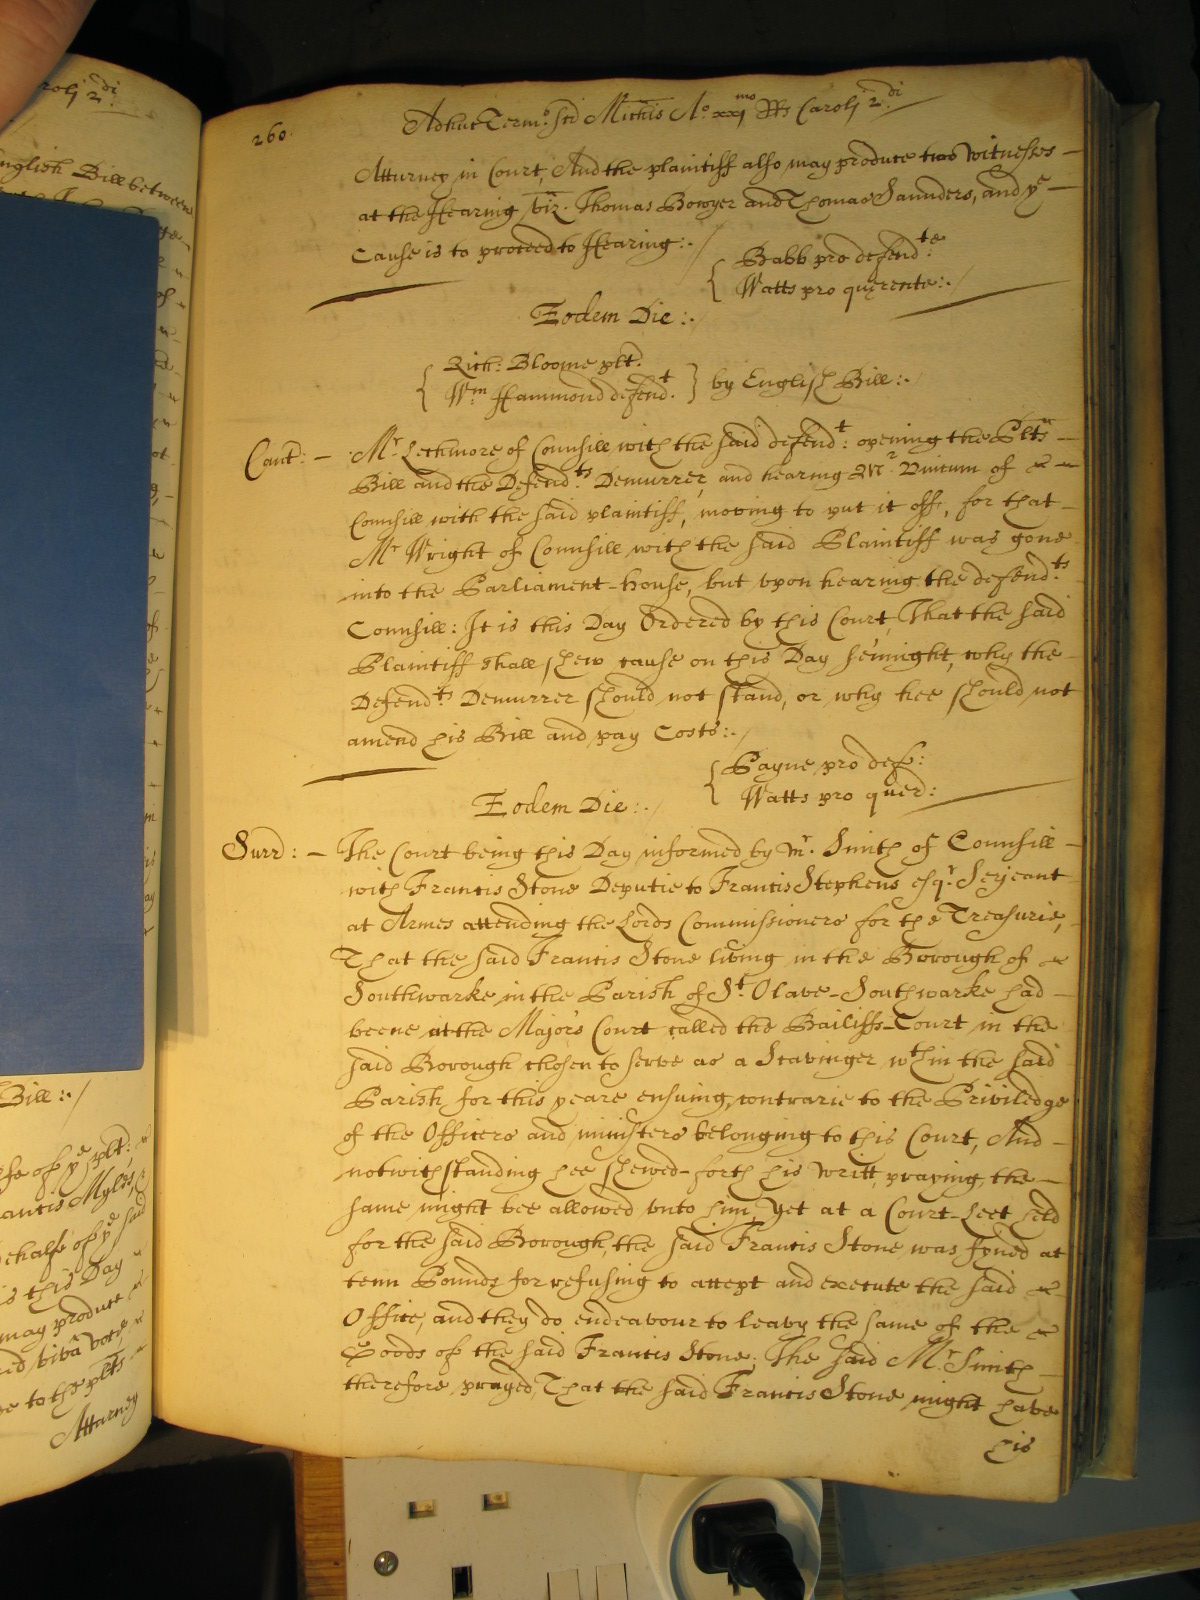 roli 2di
nglish Bill between
Bill:./
fe of ye plt:
rancis Myles,
behalfe of ye said
is this Day
may produce
ed vivâ voce
e to the plts
Attorney
260.
Adhuc Termo. Sci Michis Ao. xximo Rs Caroli 2di
Atturney in Court, And the plaintiff also may produce two Witnesses
at the Hearing vizt. Thomas Bowyer and Thomas Saunders, and ye
Cause is to proceed to Hearing:./
Babb pro defendte:
Watts pro querente:./
Eodem Die:./
Rich: Bloome plt.
Wm Hammond defendt.
by English Bill:./
Cant: - Mr. Lechmore of Counsill with the said defendt: opening the Plts
Bill and the Defendts Demurrer, and hearing Mr of
Counsill with the said plaintiff, moving to put it off, for that
Mr Wright of Counsill with the said Plaintiff was gone
into the Parliament-house, but upon hearing the defendts
Counsill: It is this Day Ordered by this Court, That the said
Plaintiff shall shew cause on this Day sennight, why the
Defendts Demurrer should not stand, or why hee should not
amend his Bill and pay Costs:./
Payne pro def:
Watts pro quer:
Eodem Die:./
Surr: - The Court being this Day informed by mr. Smith of Counsill
with Francis Stone Deputie to Francis Stephens esqr. Serjeant
at Armes attending the Lords Commissioners for the Treasurie,
That the said Francis Stone living in the Borough of
Southwarke in the Parish of St. Olave-Southwarke had
beene at the Majors Court called the Bailiffs-Court in the
said Borough chosen to serve as a Scavinger wthin the said
Parish for this yeare ensuing, contrarie to the Priviledge
of the Officers and ministers belonging to this Court, And
notwithstanding hee shewed-forth his Writt, praying, the
same might bee allowed unto him, Yet at a Court-Leet held
for the said Borough, the said Francis Stone was fyned at
tenn Pounds for refusing to accept and execute the said
Office, and they do endeavour to leavy the same of the
Goods of the said Francis Stone; The said Mr. Smith
therefore prayed, That the said Francis Stone might have
his